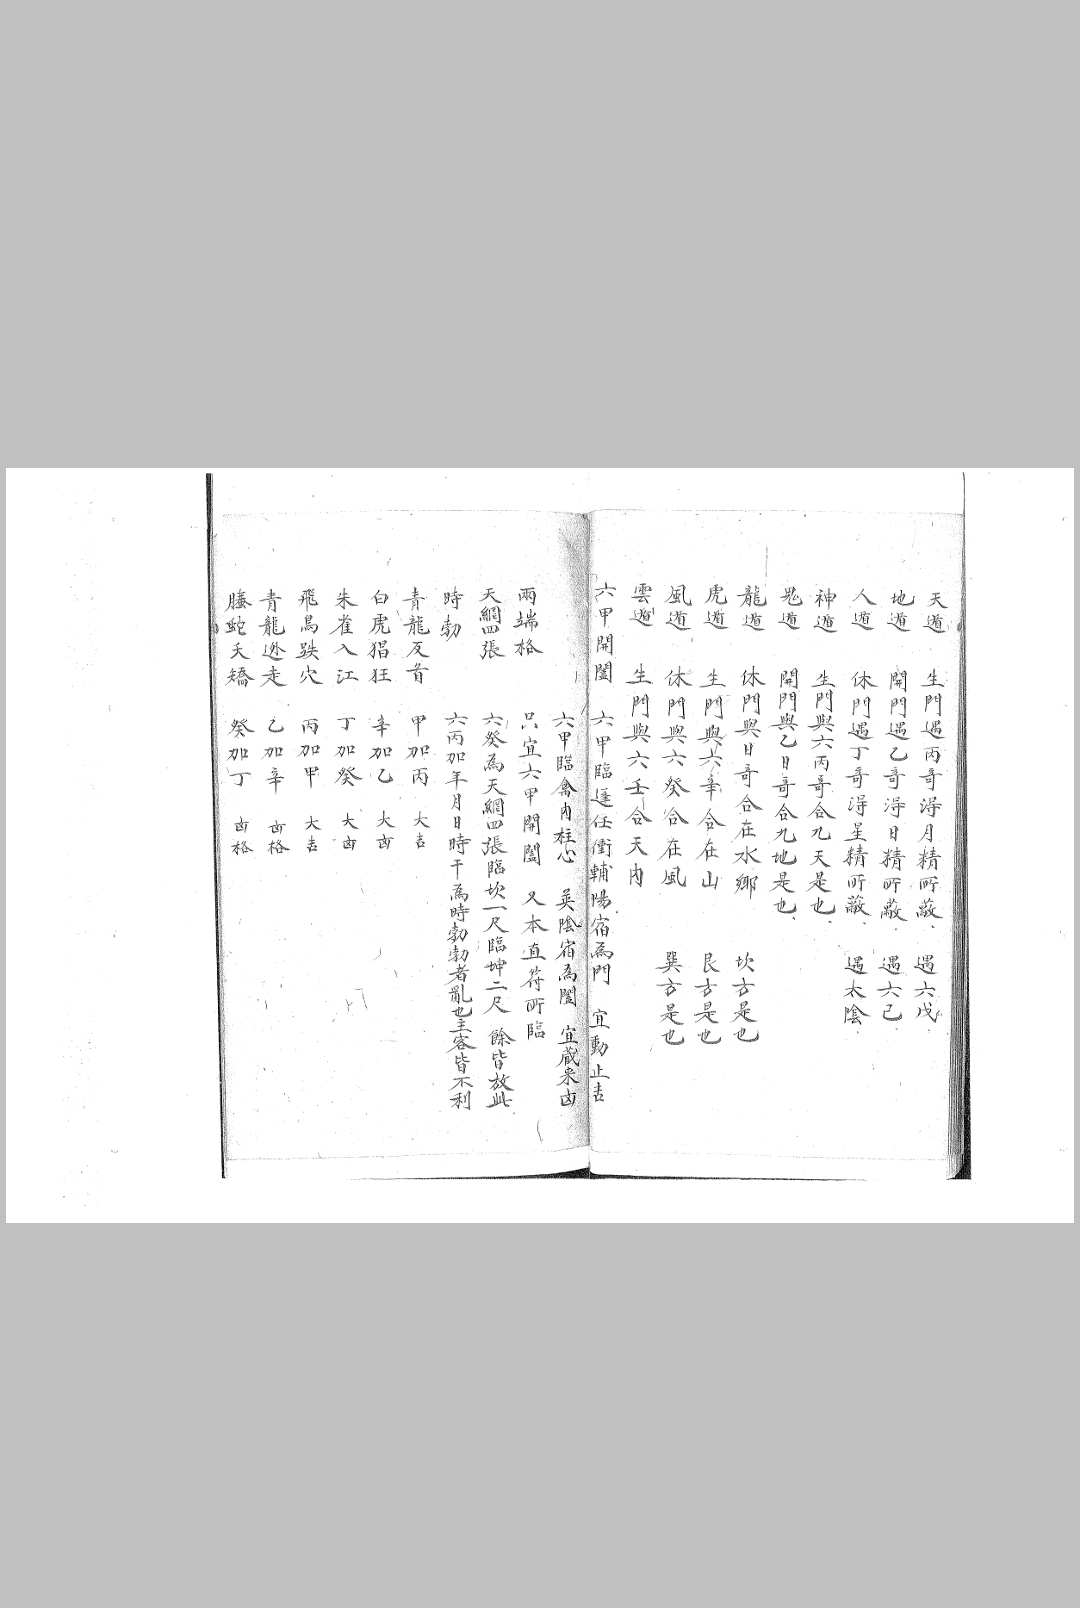 天遁　生門遇丙奇得月精所蔽　遇六戊
地遁　開門遇乙奇得日精所蔽　遇六己
人遁　休門遇丁奇得星精所蔽　遇太陰
神遁　生門與六丙奇合九天是也
鬼遁　開門與乙日奇合九地是也
龍遁　休門與日奇合在水鄉　坎方是也
虎遁　生門與六辛合在山　艮方是也
風遁　休門與六癸合在風　巽方是也
雲遁　生門與六壬合天內
六甲開闔　六甲臨蓬任衝輔陽宿為門　宜動止吉
六甲臨禽內柱心　英陰宿為闔　宜藏來凶
兩端格　只宜六甲開闔　又本直符所臨
天網四張　六癸為天網四張臨坎一尺臨坤二尺　餘皆放此
時勃　六丙加年月日時干為時勃勃者亂也主客皆不利
青龍反首　甲加丙　大吉
白虎猖狂　辛加乙　大凶
朱雀入江　丁加癸　大凶
飛鳥跌穴　丙加甲　大吉
青龍逃走　乙加辛　凶格
螣蛇夭矯　癸加丁　凶格